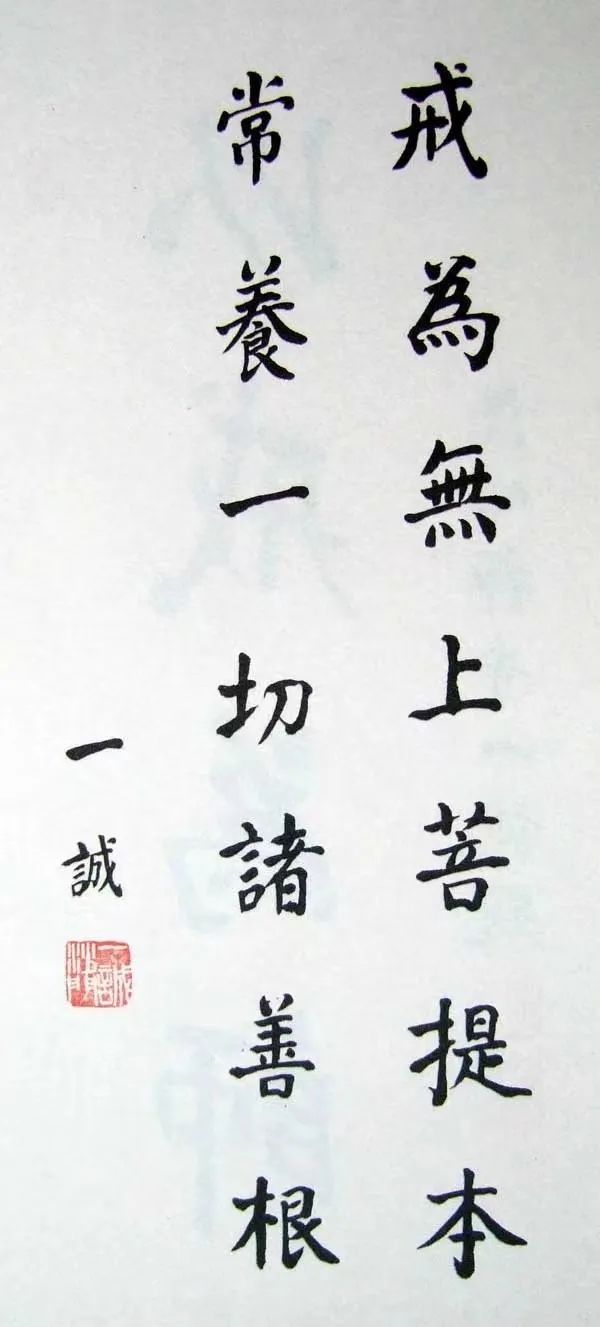 戒為無上菩提本
常養一切諸善根
一誠